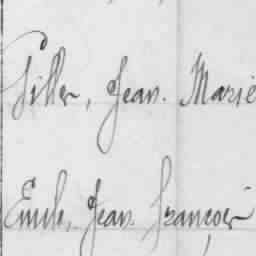 Giller, Jean. Marie
Emile, Jean. François